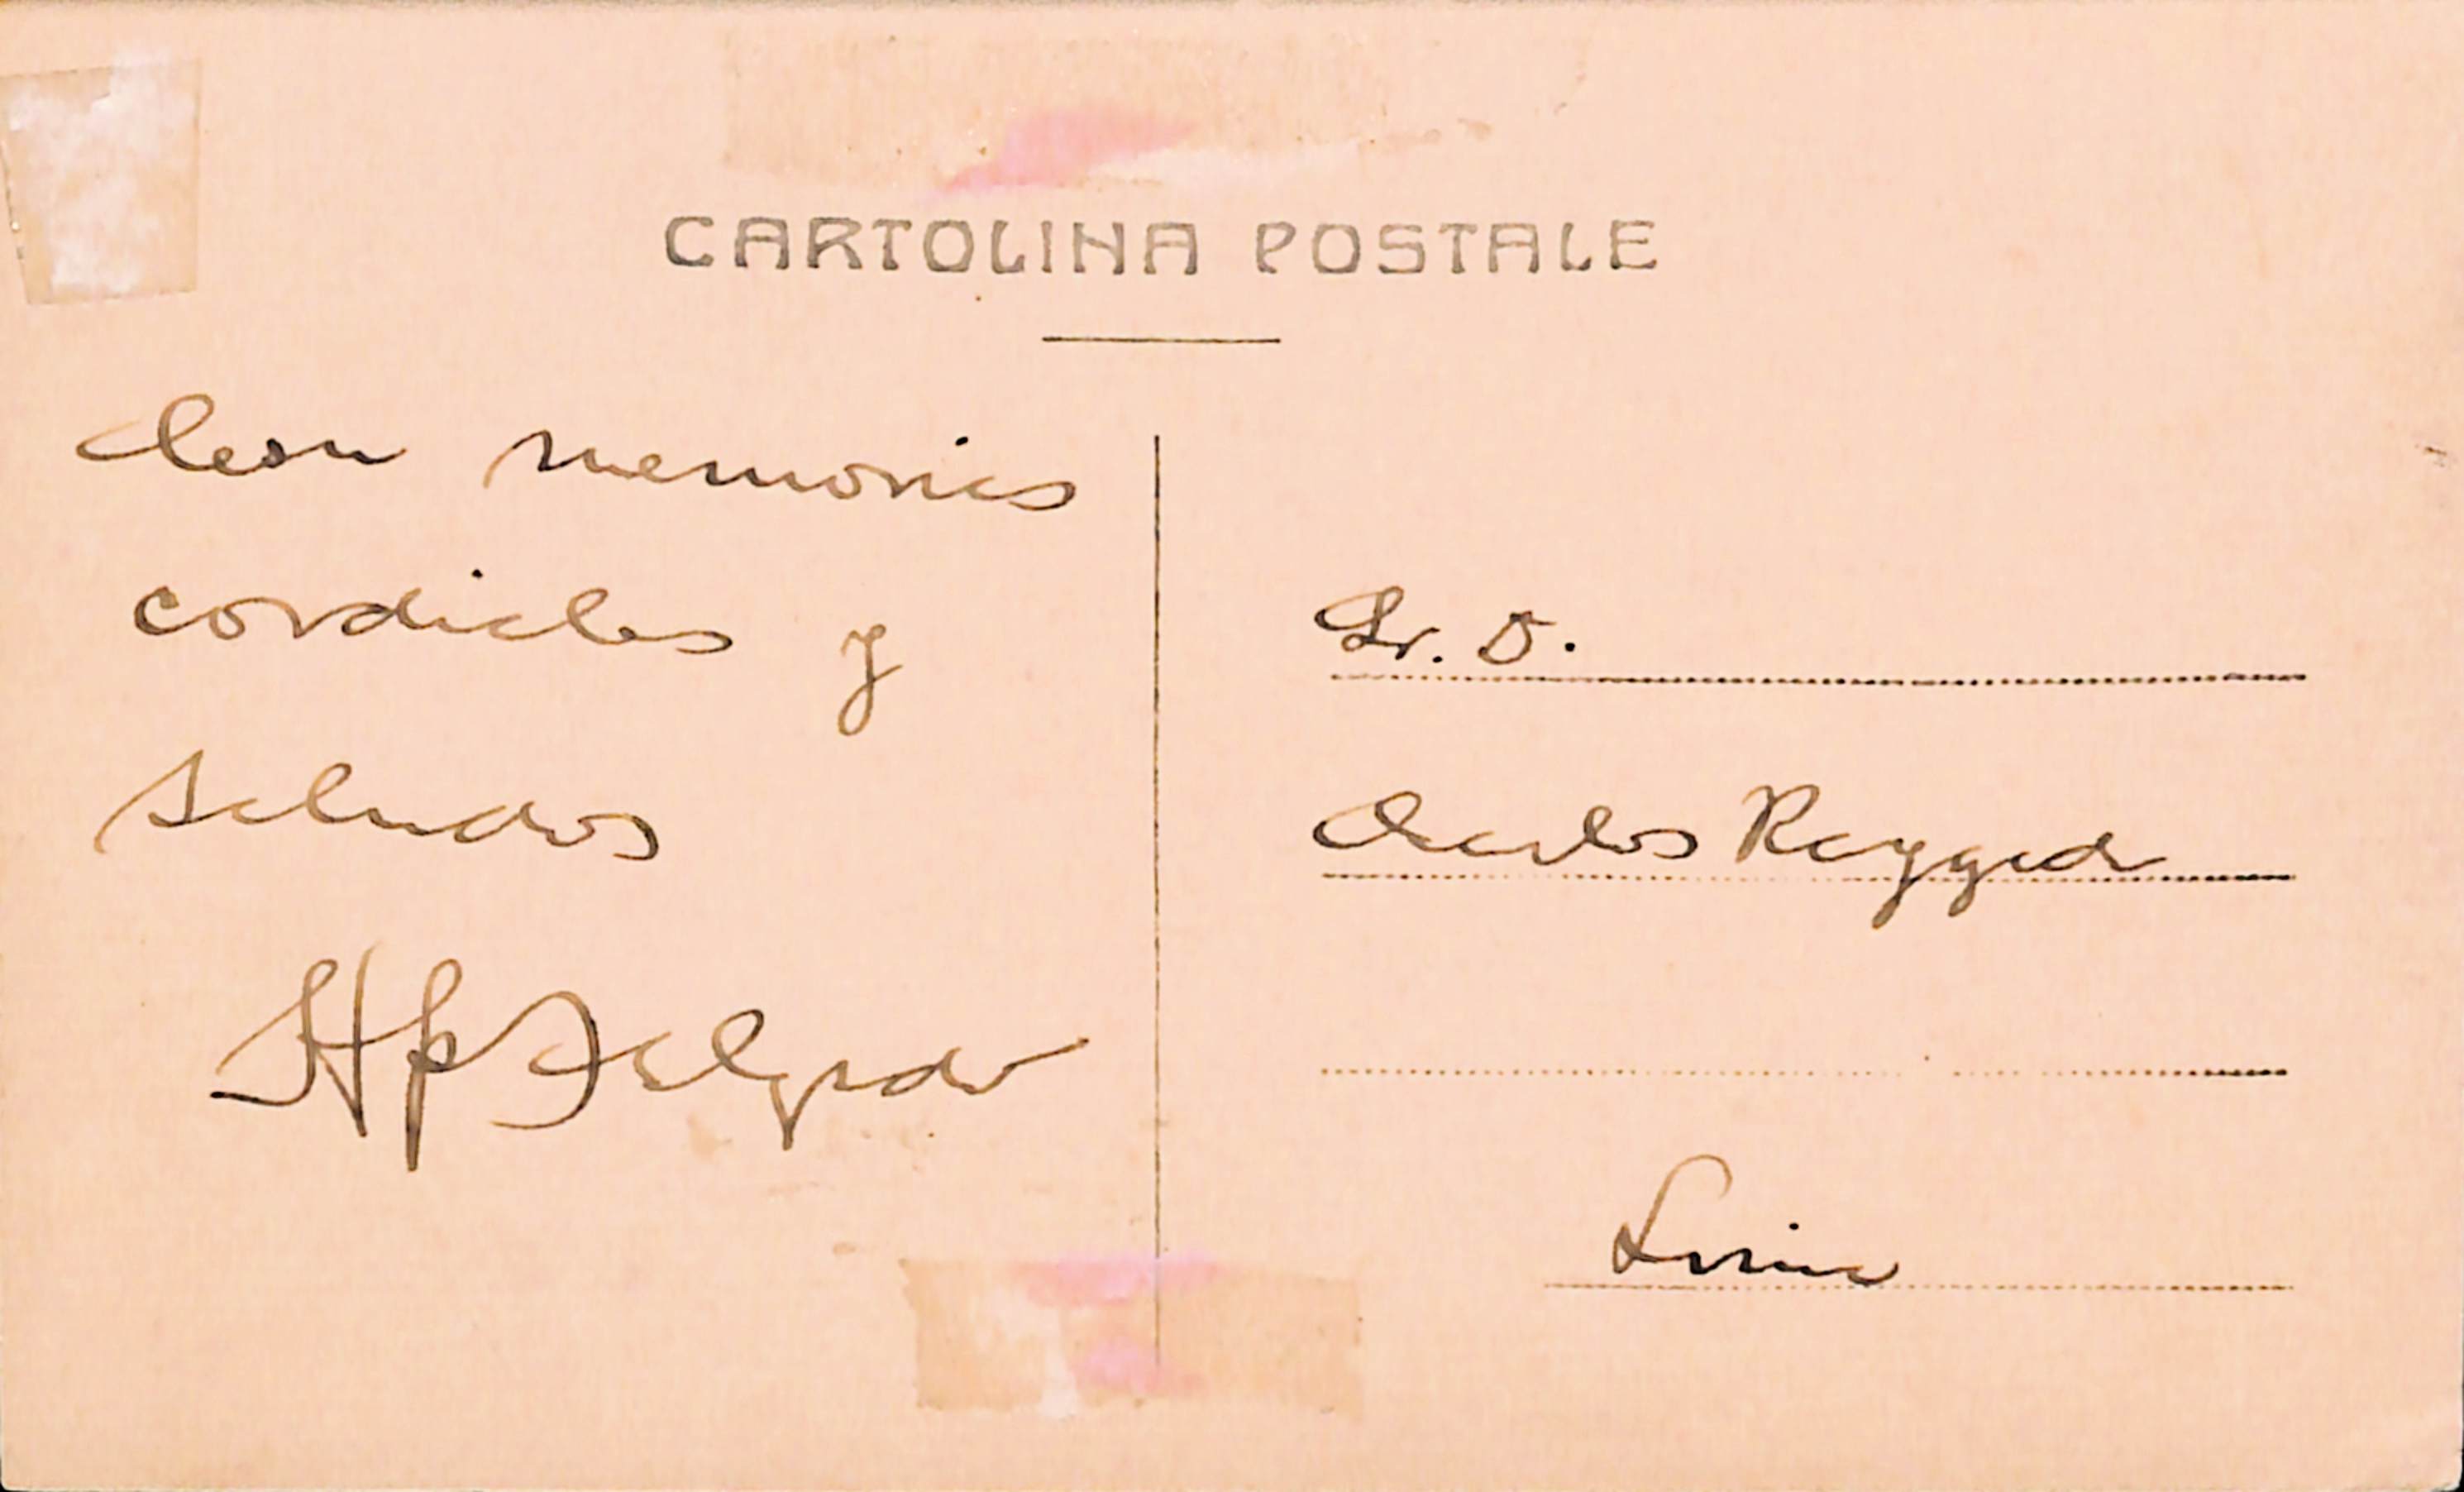 CARTOLINA POSTALE
Con memorias
cordiales y
saludos
Sr. D.
Carlos Raygada
Lima